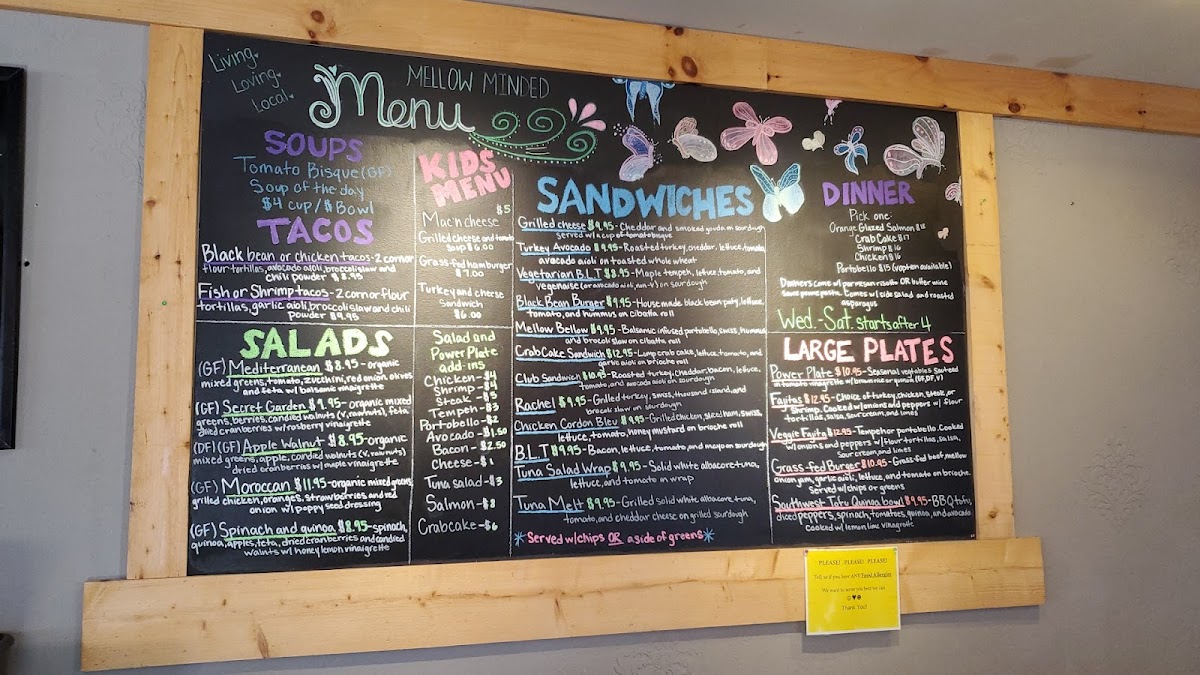 Living
Loving
Local
MELLOW MINDED
Menu
SOUPS
Tomato Bisque (GF)
Soup of the day
$4 cup/$ Bowl
TACOS
Black bean or chicken tacos - 2 corn or
flour tortillas, avocado aioli, broccoli slaw and
chili powder $8.95
Fish or Shrimp tacos - 2 corn or flour
tortillas, garlic aioli broccoli slaw and chili
powder $9.95
SALADS
(GF) Mediterranean $8.95 - organic
mixed greens, tomato, zucchini, red onion, olives
and feta w/ balsamic vinaigrette
(GF) Secret Garden $9.95 - organic mixed
greens, berries, candied walnuts (v, raw nuts), feta,
dried cranberries w/ rasberry vinaigrette
(DF)(GF) Apple Walnut $8.95 - organic
mixed greens, apple, candied walnuts (v, raw nuts)
dried cranberries w/ maple vinaigrette
(GF) Moroccan $11.95 - organic mixed greens
grilled chicken, oranges, strawberries and red
onion w/ poppy seed dressing
(GF) Spinach and quinoa $8.95 - spinach,
quinoa, apples, feta, dried cranberries and candied
walnuts w/ honey lemon vinaigrette
KIDS
MENU
$5
Mac'n cheese
Grilled cheese and tomato
soup $6.00
Grass-fed hamburger
$7.00
Turkey and cheese
Sandwich
$6.00
Salad and
Power Plate
add-ins
Chicken - $4
Shrimp - $4
Steak - $5
Tempeh - $3
Portobello - $2
Avocado - $1.50
Bacon - $2.50
Cheese - $1
Tuna salad - $3
Salmon - $8
Crabcake - $6
SANDWICHES
Grilled cheese $9.95 - Cheddar and smoked gouda on sourdough
served w/ a cup of tomato bisque
Turkey Avocado $9.95 - Roasted turkey, cheddar, lettuce, tomato,
avocado aioli on toasted whole wheat
Vegetarian B.L.T $8.95 - Maple tempeh, lettuce, tomato, and
vegenaise (or avocado aioli, non-v) on sourdough
Black Bean Burger $9.95 - House made black bean patty, lettuce,
tomato, and hummus on cibatta roll
Mellow Bellow $9.95 - Balsamic infused portobello, swiss, hummus
and brocoli slaw on cibatta roll
Crab Cake Sandwich $12.95 - Lump crab cake, lettuce, tomato, and
garlic aioli on brioche roll
Club Sandwich $10.95 - Roasted turkey, cheddar, bacon, lettuce,
tomato, and avocado aioli on sourdough
Rachel $9.95 - Grilled turkey, swiss, thousand island, and
brocoli slaw on sourdough
Chicken Cordon Bleu $9.95 - Grilled chicken, sliced ham, swiss,
lettuce, tomato, honey mustard on brioche roll
B.L.T $9.95 - Bacon, lettuce, tomato, and mayo on sourdough
Tuna Salad Wrap $9.95 - Solid white albacore tuna,
lettuce, and tomato in wrap
Tuna Melt $9.95 - Grilled solid white albacore tuna,
tomato, and cheddar cheese on grilled sourdough
*Served w/chips OR a side of greens*
DINNER
Pick one:
Orange Glazed Salmon $18
Crab Cake $17
Shrimp $16
Chicken $16
Portobello $15 (v option available)
Dinners come w/ parmesan risotto OR butter wine
sauce penne pasta. Comes w/ side salad and roasted
asparagus
Wed.-Sat. starts after 4
LARGE PLATES
Power Plate $10.95 - Seasonal vegetables sauteed
in tomato vinaigrette w/ brown rice or quinoa (GF, DF, V)
Fajitas $12.95 - Choice of turkey, chicken, steak, or
Shrimp. Cooked w/ onions and peppers w/ flour
tortillas, salsa, sour cream, and limes
Veggie Fajita $12.95 - Tempeh or portobello. Cooked
w/ onions and peppers w/ flour tortillas, salsa,
sour cream, and limes
Grass-fed Burger $10.95 - Grass-fed beef, mellow
onion jam, garlic aioli, lettuce, and tomato on brioche.
Served w/ chips or greens
Southwest Tofu Quinoa bowl $9.95 - BBQ tofu,
diced peppers, spinach, tomatoes, quinoa, and avocado
cooked w/ lemon lime vinaigrette
PLEASE! PLEASE! PLEASE!
Tell us if you have ANY Food Allergies
We want to serve you best we can
Thank You!